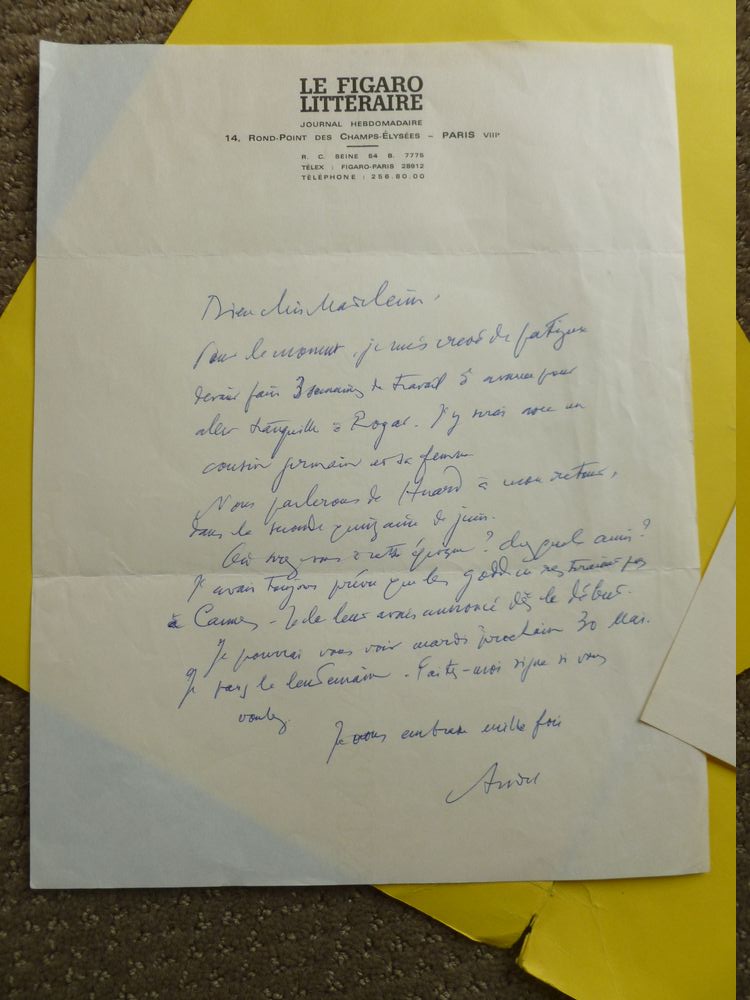 LE FIGARO
LITTERAIRE
JOURNAL HEBDOMADAIRE
14, ROND-POINT DES CHAMPS-ÉLYSÉES – PARIS VIIIᵉ
R. C. SEINE 54 B. 7775
TÉLEX : FIGARO-PARIS 28912
TÉLÉPHONE : 256.80.00
Pour le moment, je suis crevé de fatigue
devant faire 3 semaines de travail à avance pour
aller tranquille à Royat. J'y serai avec un
cousin germain et sa femme
Nous parlerons de Huard à mon retour,
dans la seconde quinzaine de juin.
Où serez-vous à cette époque ? chez quel amis ?
J'avais toujours prévu que les ne resteraient pas
à Cannes - Je le leur avais annoncé dès le début.
Je pourrai vous voir mardi prochain 30 Mai.
Je pars le lendemain. Faites-moi signe si vous
voulez
Je vous embrasse mille fois
André